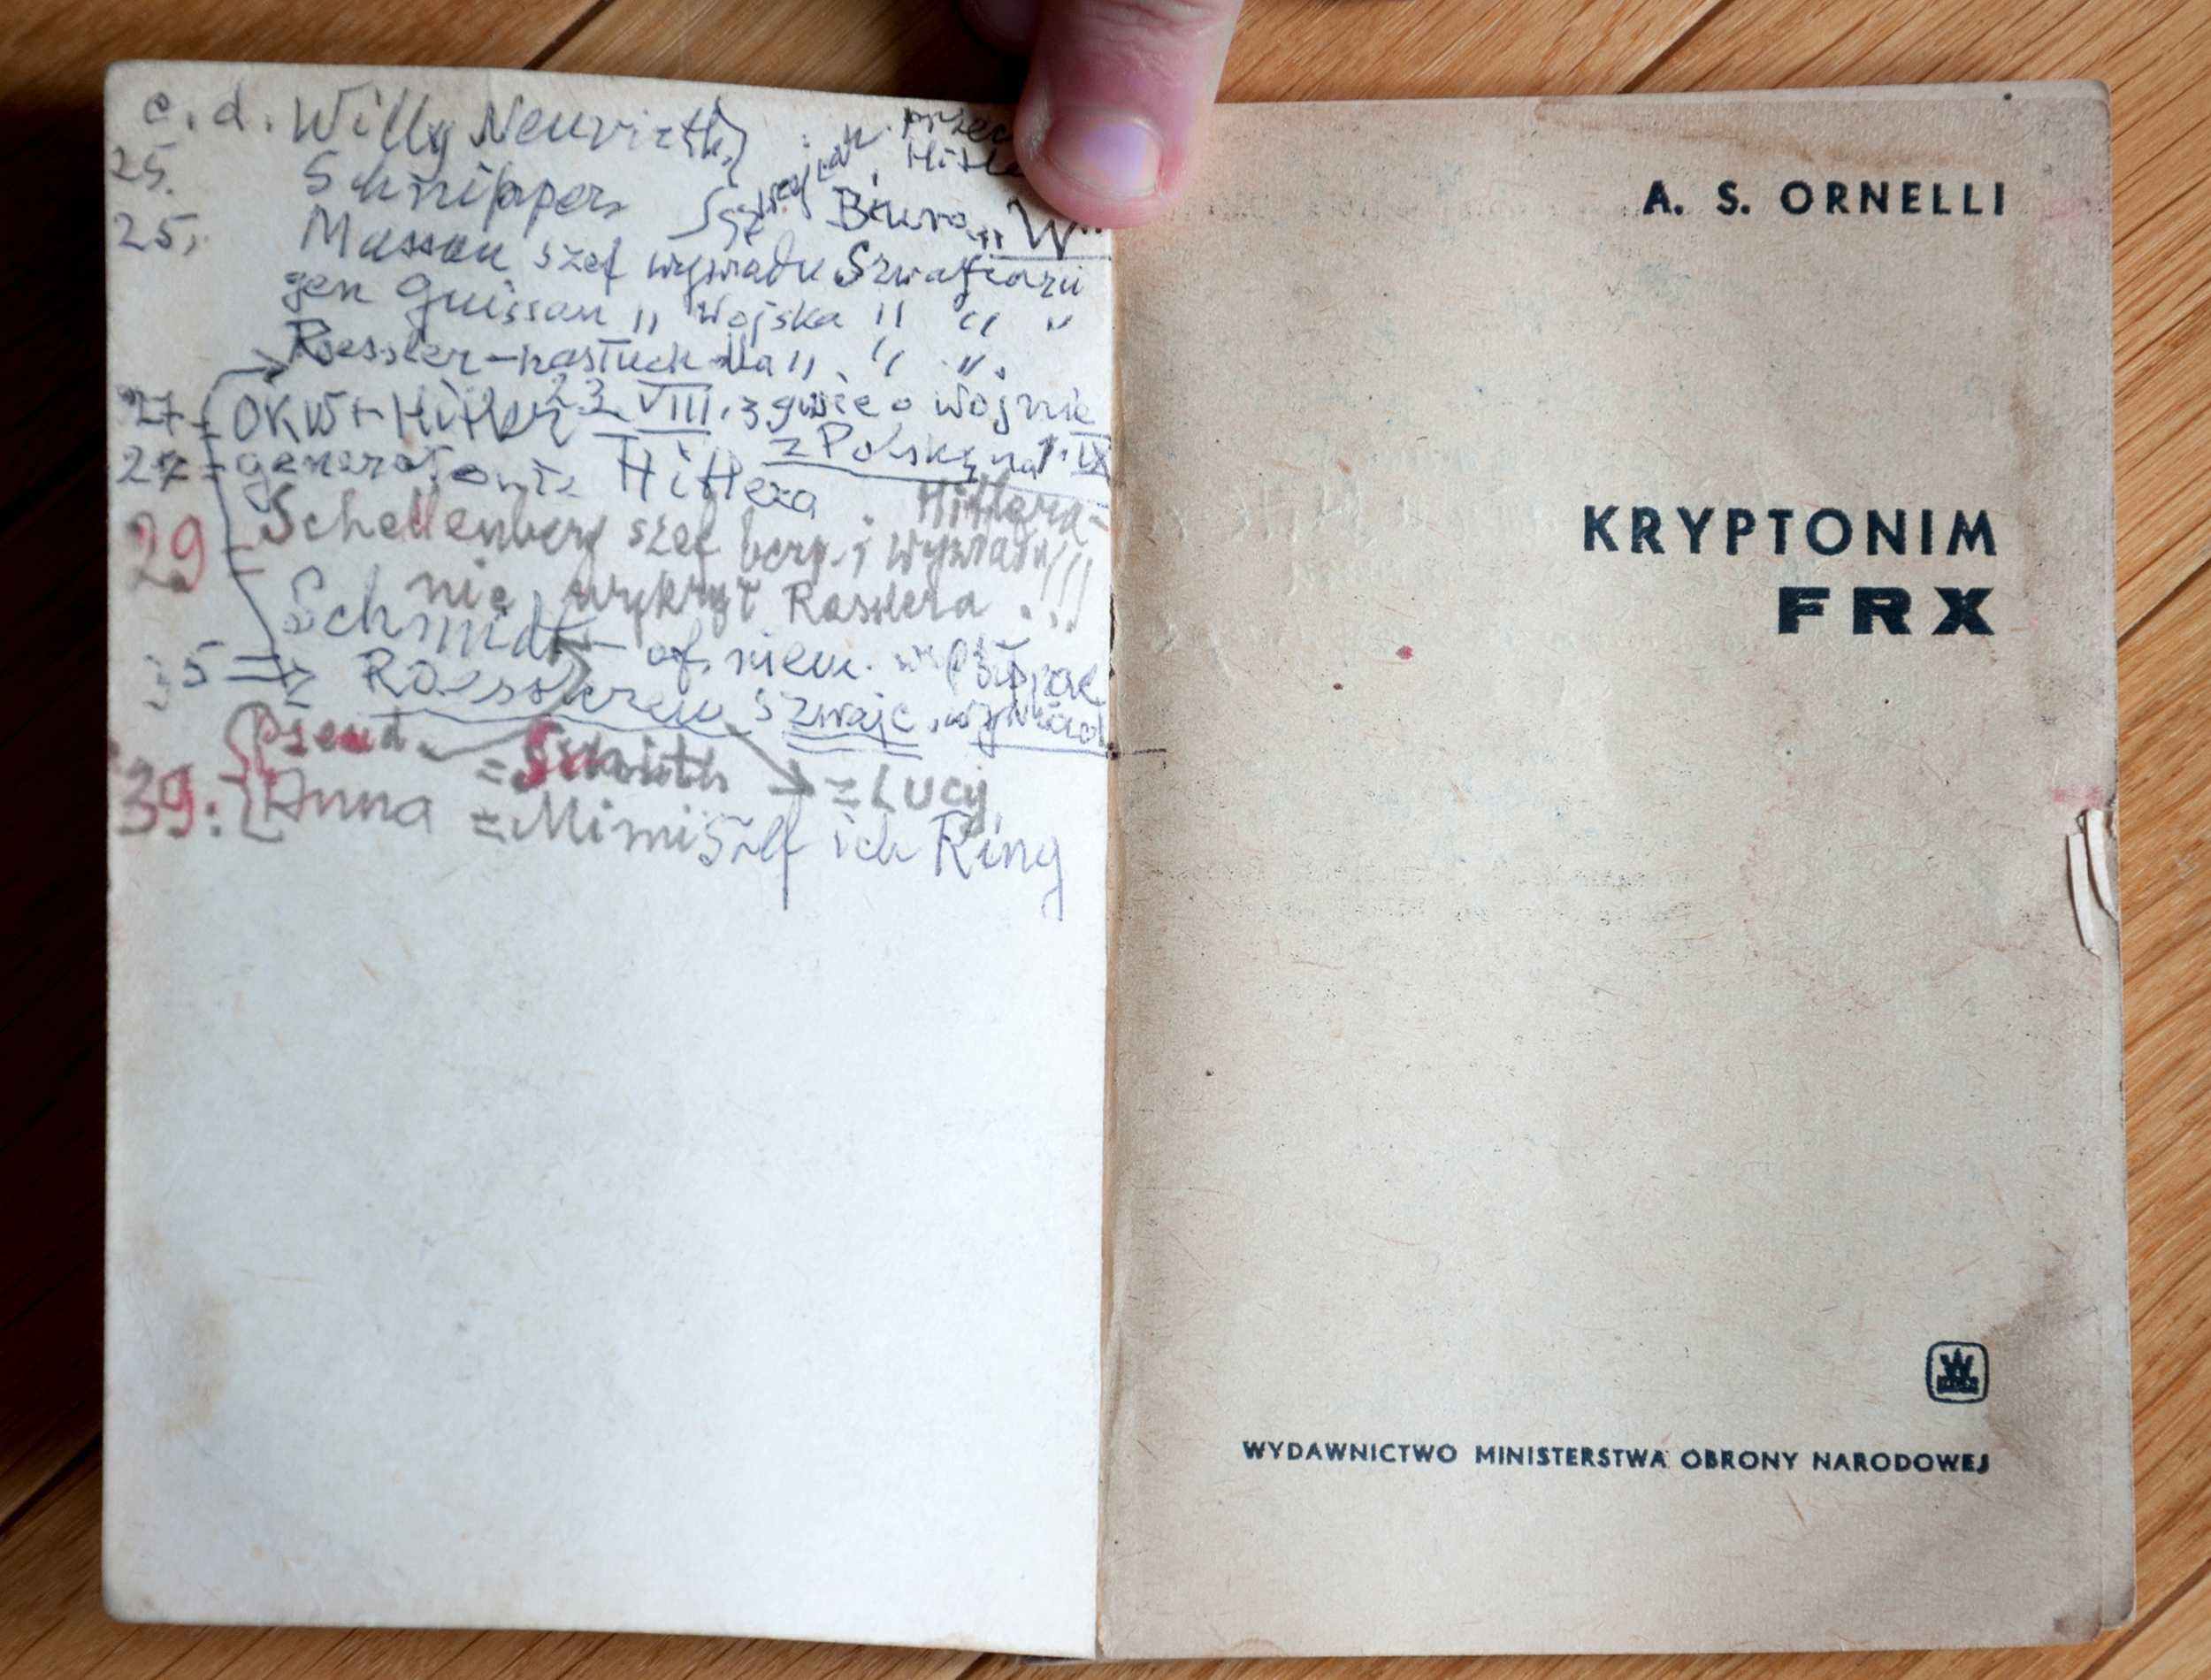 c. d. Willy
25. Schnipper
przec
Hitle
Biuro „W"
25. Masson szef wywiadu Szwajcarii
gen Guissan „ Wojska „ „ „
Roessler - nasłuch dla „ „ „
27 - OKW + Hitler 23 VIII. o wojnie
z Polską na 1. IX
27 = Hitlera
29 - Schellenberg szef bezp. i wywiadu Hitlera -
nie wykrył Rosslera !!!
Schmidt - of. niem.
35 ⇒ Roesslerem szwajc.
pseud. = Lucy
39: Anna = Mimi szef ich Ring
A. S. ORNELLI
KRYPTONIM
FRX
WYDAWNICTWO MINISTERSTWA OBRONY NARODOWEJ